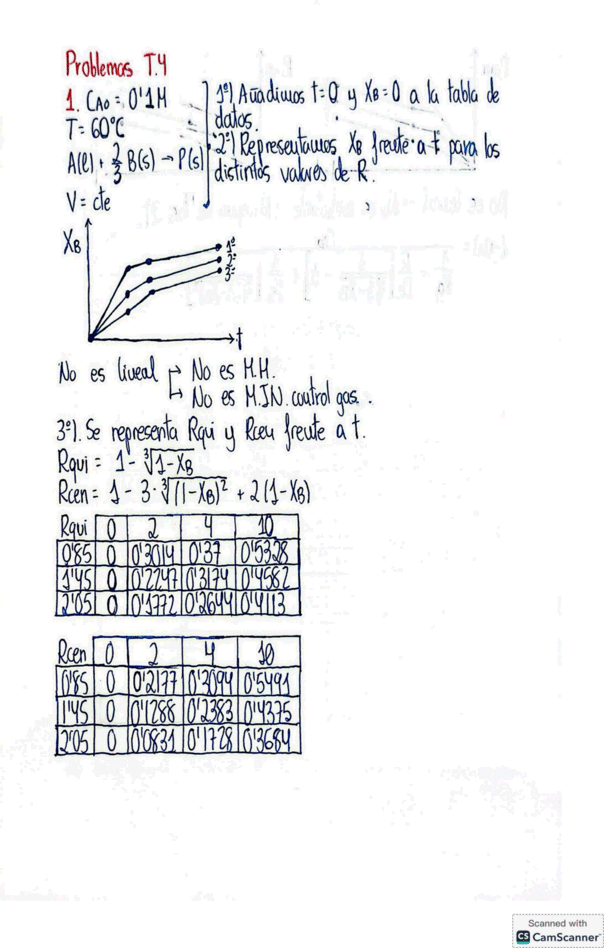 Problemas T.4
1. CAo = 0'1M
T = 60°C
A(l) + 2/3 B(s) → P(s)
V = cte
1º) Añadimos t=0 y XB=0 a la tabla de
datos.
2º) Representamos XB frente a t para los
distintos valores de R.
XB
1º
2º
3º
t
No es lineal → No es M.H.
↳ No es M.I.N. control gas.
3º). Se representa Rqui y Rcen frente a t.
Rqui = 1 - ∛(1-XB)
Rcen = 1 - 3·∛((1-XB)²) + 2(1-XB)
Rqui 0 2 4 10
0'85 0 0'3014 0'37 0'5328
1'45 0 0'2247 0'3174 0'4582
2'05 0 0'1772 0'2644 0'4113
Rcen 0 2 4 10
0'85 0 0'2177 0'3094 0'5491
1'45 0 0'1288 0'2383 0'4375
2'05 0 0'0831 0'1728 0'3684
Scanned with
CS CamScanner